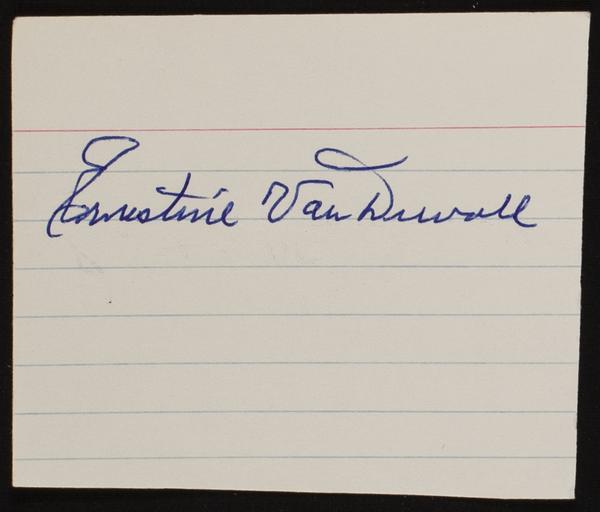 Ernestine Van Duvall